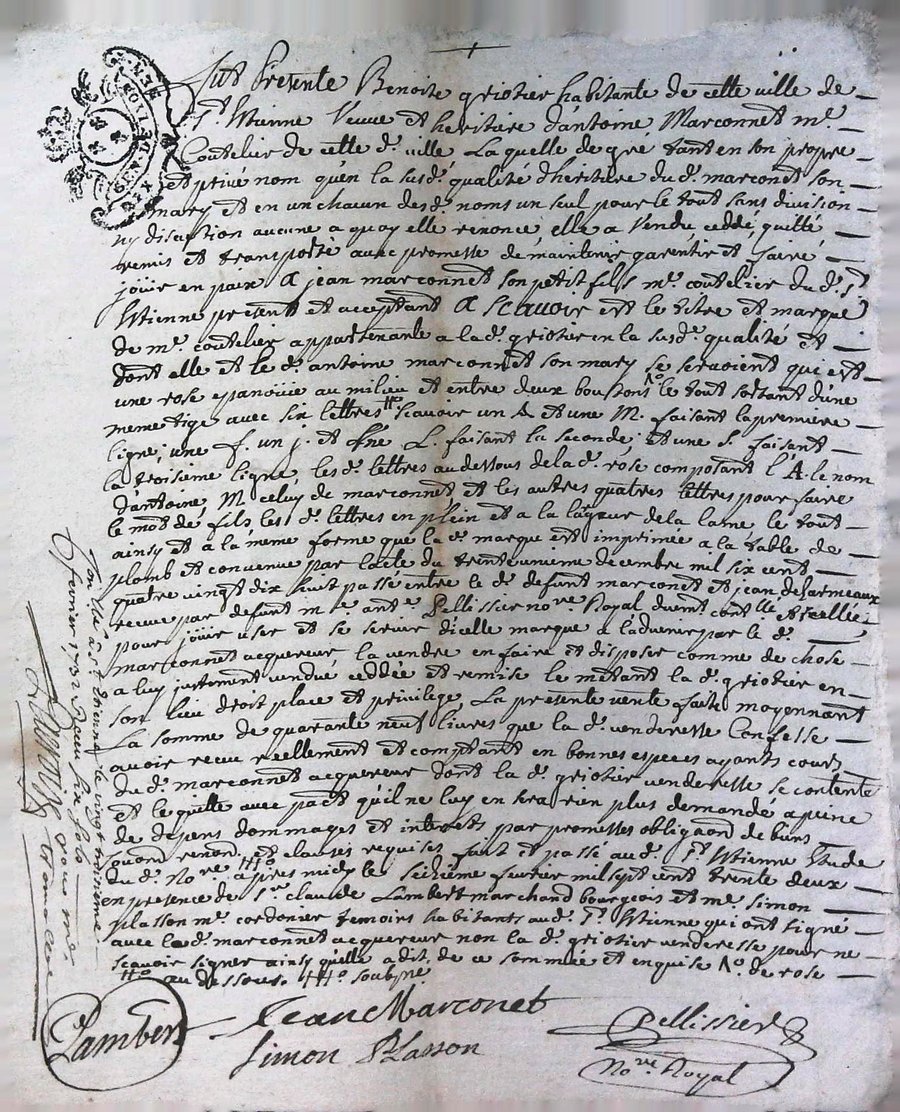 fut Presente Benoite griotier habitante de cette ville de
St Etienne Veuve et heritiere d'antoine Marconnet me
Coutelier de cette de ville Laquelle de gré tant en son propre
et privé nom qu'en la susde qualité d'heritiere du dt marconnet son
mary et en un chacun desds noms un seul pour le tout sans division
ny discution aucune a quoy elle renonce elle a Vendu ceddé quitté
remis et transporté avec promesse de maintenir garentir et faire
joüir en paix A jean marconnet son petit fils me coutelier du dt St
Etienne present et acceptant A scavoir est le titre et marque
de me coutelier appartenante a la de griotier en la susde qualité et
dont elle et le dt antoine marconnet son mary se servoient que est
une rose epanoüie au milieu et entre deux boustons le tout sortant d'une
meme tige avec six lettres scavoir un A et une M. faisant la premiere
ligne, une f. un j. et une L. faisant la seconde et une s. faisant
la troisieme ligne les des lettres au dessous de la de rose composant l'A. le nom
d'antoine M celuy de marconnet et les autres quatres lettres pour faire
le mot de fils les des lettres en plein et a la largeur de la lame le tout
ainsy et a la meme forme que la de marque est imprimée a la table de
plomb et convenue par l'acte du trente unieme decembre mil six cent
quatre vingt dix huit passé entre le dt defunt marconnet et jean desarmeaux
receue par defunt me ante Pellissier nore Royal duemt contllé et scellée
pour joüir user et se servir d'icelle marque a l'advenir par le dt
marconnet acquereur la vendre en faire et disposer comme de chose
a luy justement vendue ceddée et remise le metant la de griotier en
son lieu droit place et privilege La presente vente faite moyennant
La somme de quarante neuf livres que la de venderesse Confesse
avoir recu reellement et comptant en bonnes especes ayants cours
du dt marconnet acquereur dont la de griotier venderesse se contente
et le quitte avec pact qu'il ne luy en sera rien plus demandé a peine
de depens dommages et interets par promesses obligaond de biens
soumd renond et clauses requises fait et passé au dt St Etienne Etude
du dt Nore apres midy le seizieme fevrier mil sept cent trente deux
en presence de sr claude Lambert marchand bourgeois et me simon
plasson me cordonier temoins habitants aud. St Etienne qui ont signé
avec led. marconnet acquereur non la de griotier venderesse pour ne
scavoir signer ainsy qu'elle a dit de ce sommée et enquise de rose
au dessous. soubsne
Lambert
Jean Marconet
Simon Plasson
Pellissier
Nore Royal
fevrier 1732 Recu six sols